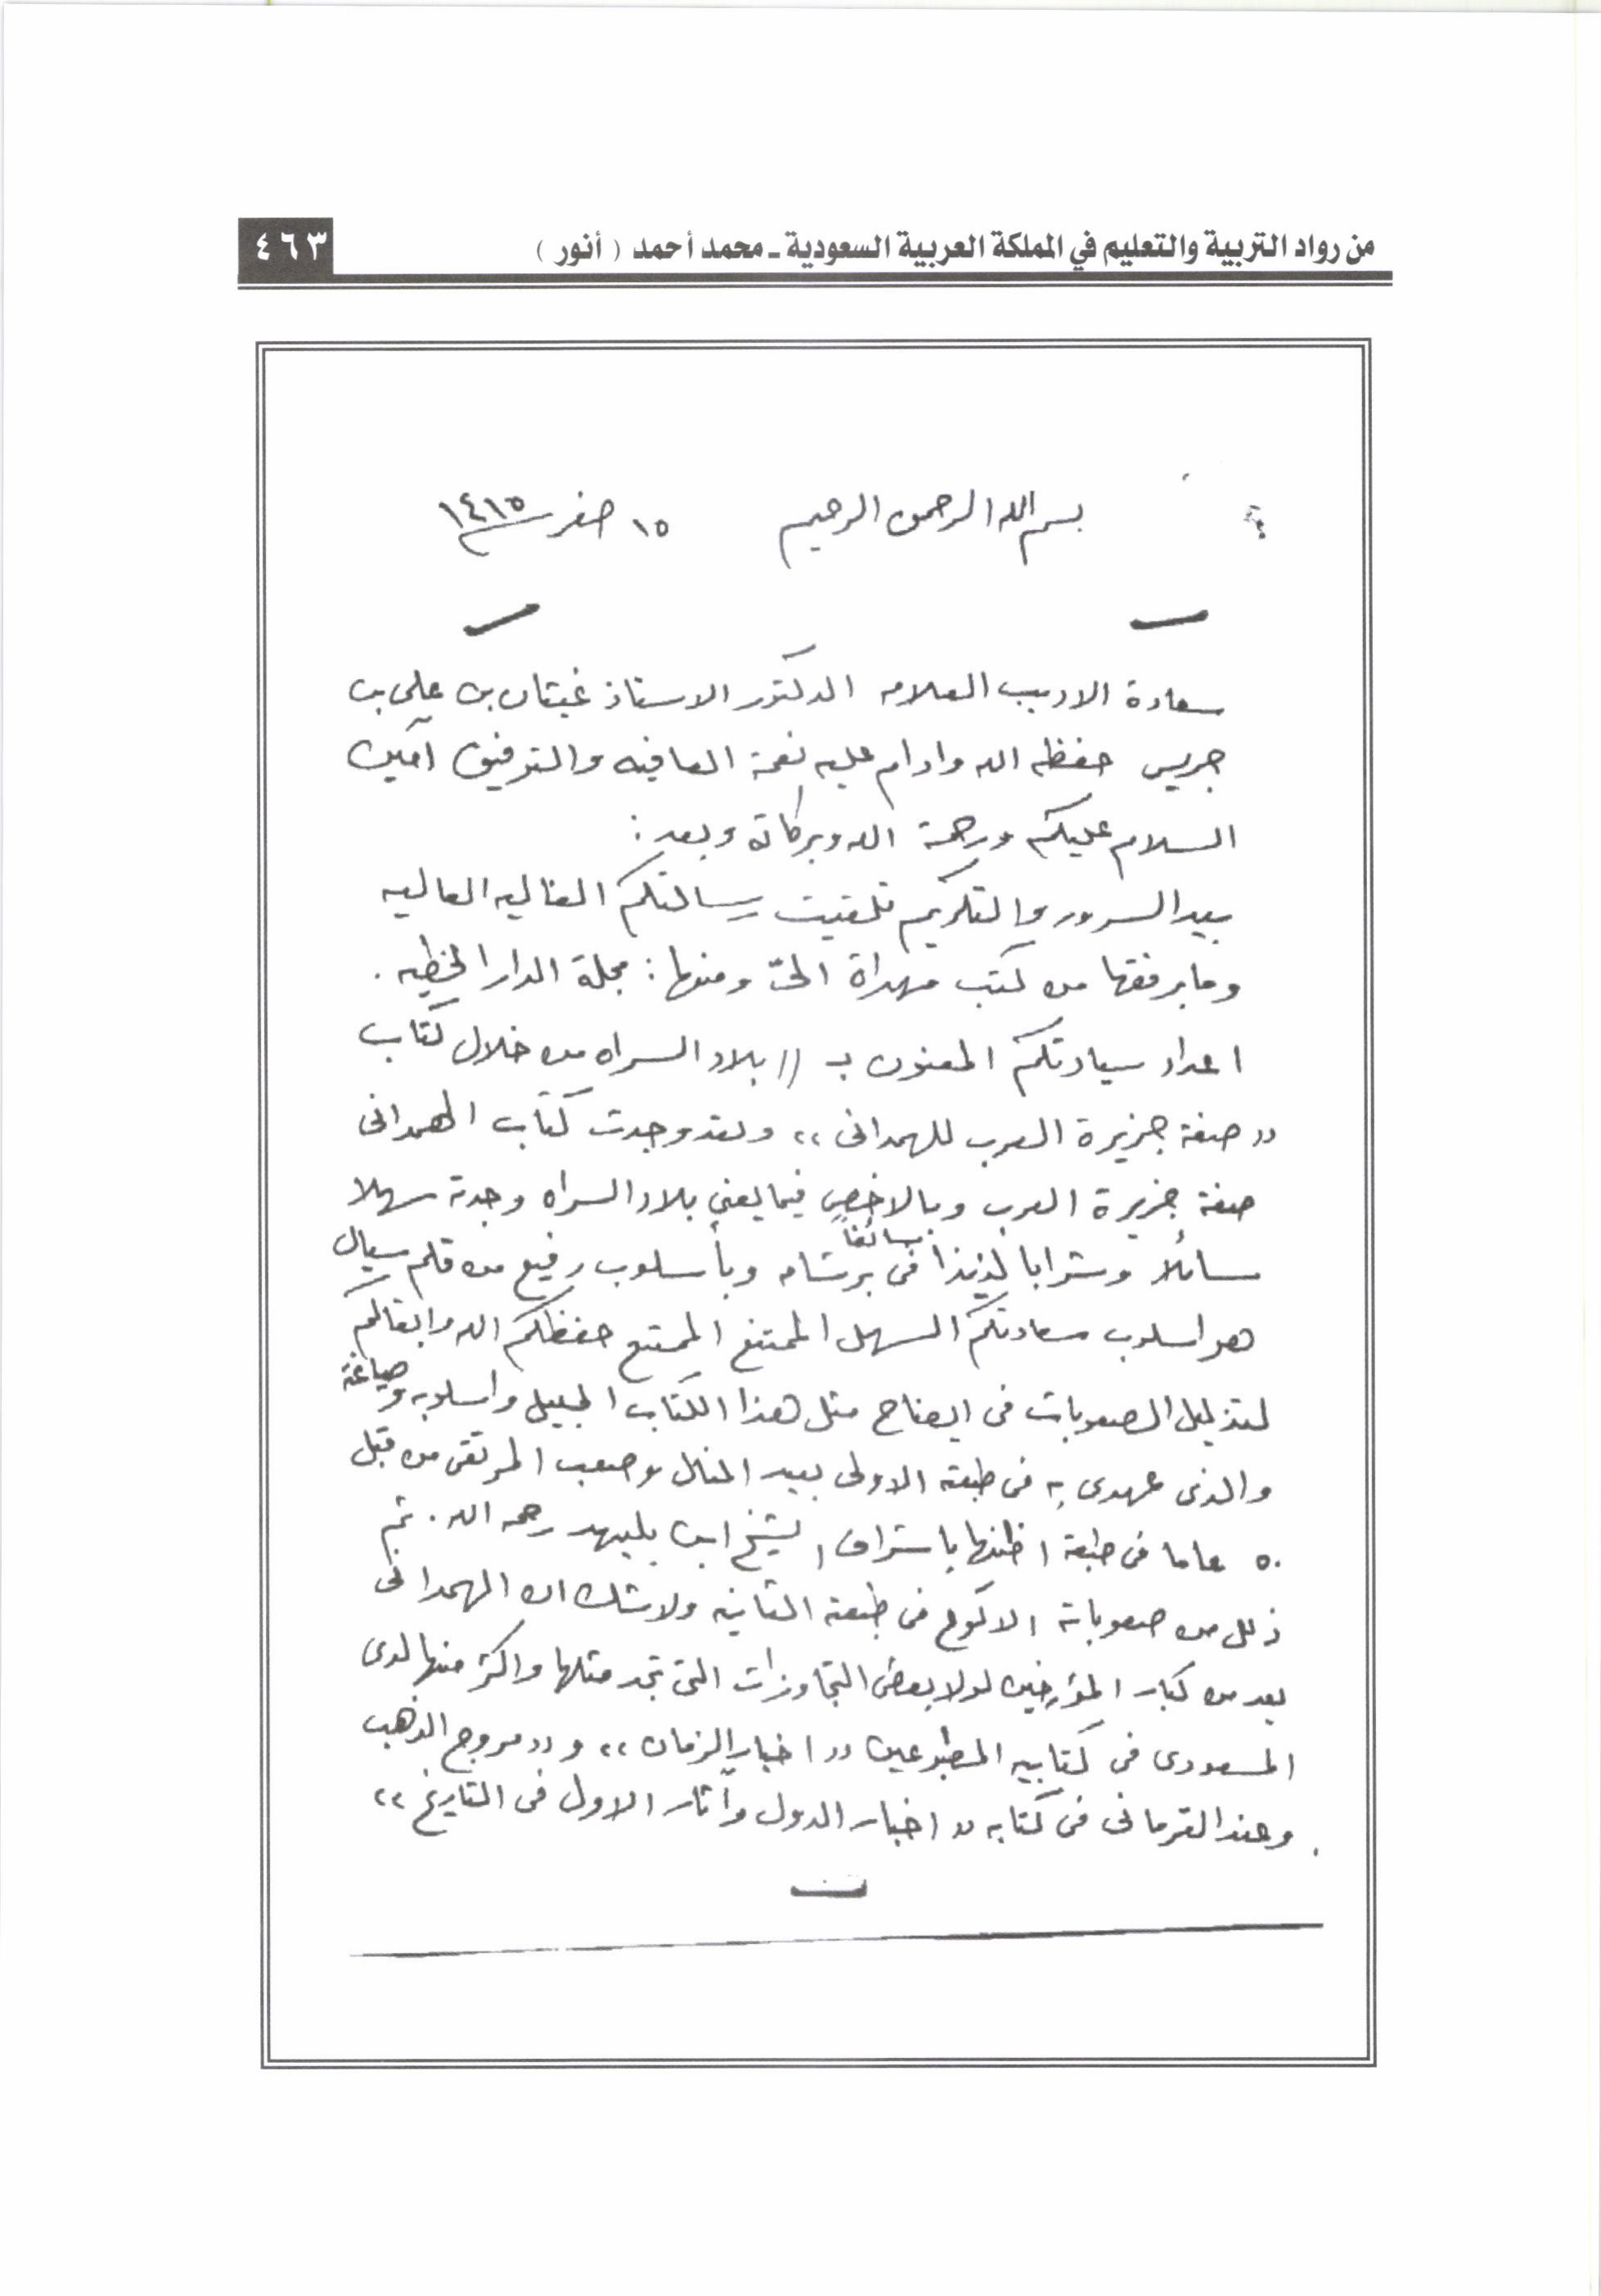 من رواد التربية والتعليم في المملكة العربية السعودية ـ محمد أحمد ( أنور )
٤٦٣
بسم الله الرحمن الرحيم ١٥ صفر ١٤١٥
سعادة الاديب العلامه الدكتور الاستاذ غيثان بن علي بن
جريس حفظه الله وادام عليه نعمة العافيه والتوفيق آمين
السلام عليكم ورحمة الله وبركاته وبعد :
بيد السرور والتكريم تلقيت رسالتكم الغاليه العاليه
وما برفقها من كتب مهداة اليّ ومنها : مجلة الدار الخطيه .
اعداد سيادتكم المعنون بـ (( بلاد السراه من خلال كتاب
(( صفة جزيرة العرب للهمدانى ,, ولقد وجدت كتاب الهمدانى
صفة جزيرة العرب وبالاخص فيما يعني بلاد السراه وجدته سهلا
سائلا وشرابا لذيذا سائغاً في برشامه وبأسلوب رفيع من قلم سيال
هو اسلوب سعادتكم السهل الممتنع الممتع حفظكم الله وابقاكم
لتذليل الصعوبات فى ايضاح مثل هذا الكتاب الجليل واسلوبه وصياغة
والذى عهدى به فى طبعته الاولى بعيد المنال وصعب المرتقى من قبل
٥٠ عاما فى طبعة اظنها باشراف الشيخ ابن بليهد رحمه الله . ثم
ذلل من صعوباته الاكوع فى طبعته الثانيه ولاشك ان الهمدانى
يعد من كبار المؤرخين لولا بعض التجاوزات التى تجد مثلها واكثر منها لدى
المسعودى فى كتابيه المطبوعين (( اخبار الزمان ,, و (( مروج الذهب
وعند القرمانى فى كتابه (( اخبار الدول وآثار الاول فى التاريخ ,,